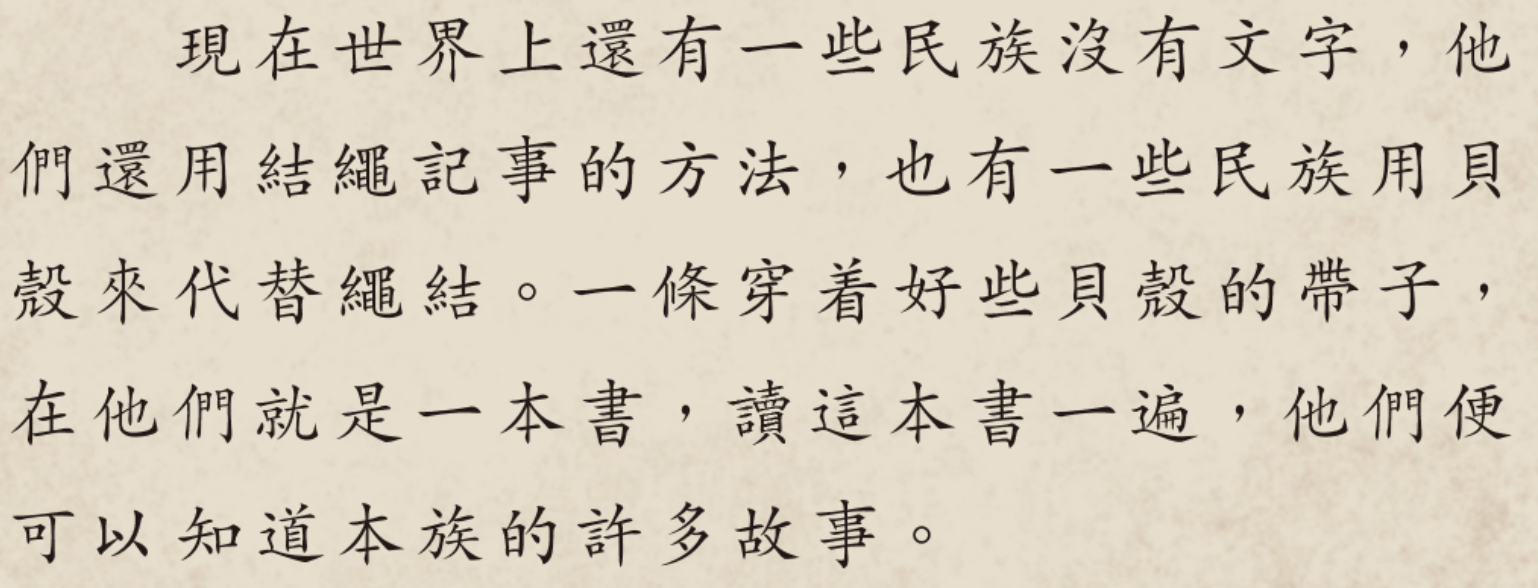 現在世界上還有一些民族沒有文字，他
們還用結繩記事的方法，也有一些民族用貝
殼來代替繩結。一條穿着好些貝殼的帶子，
在他們就是一本書，讀這本書一遍，他們便
可以知道本族的許多故事。